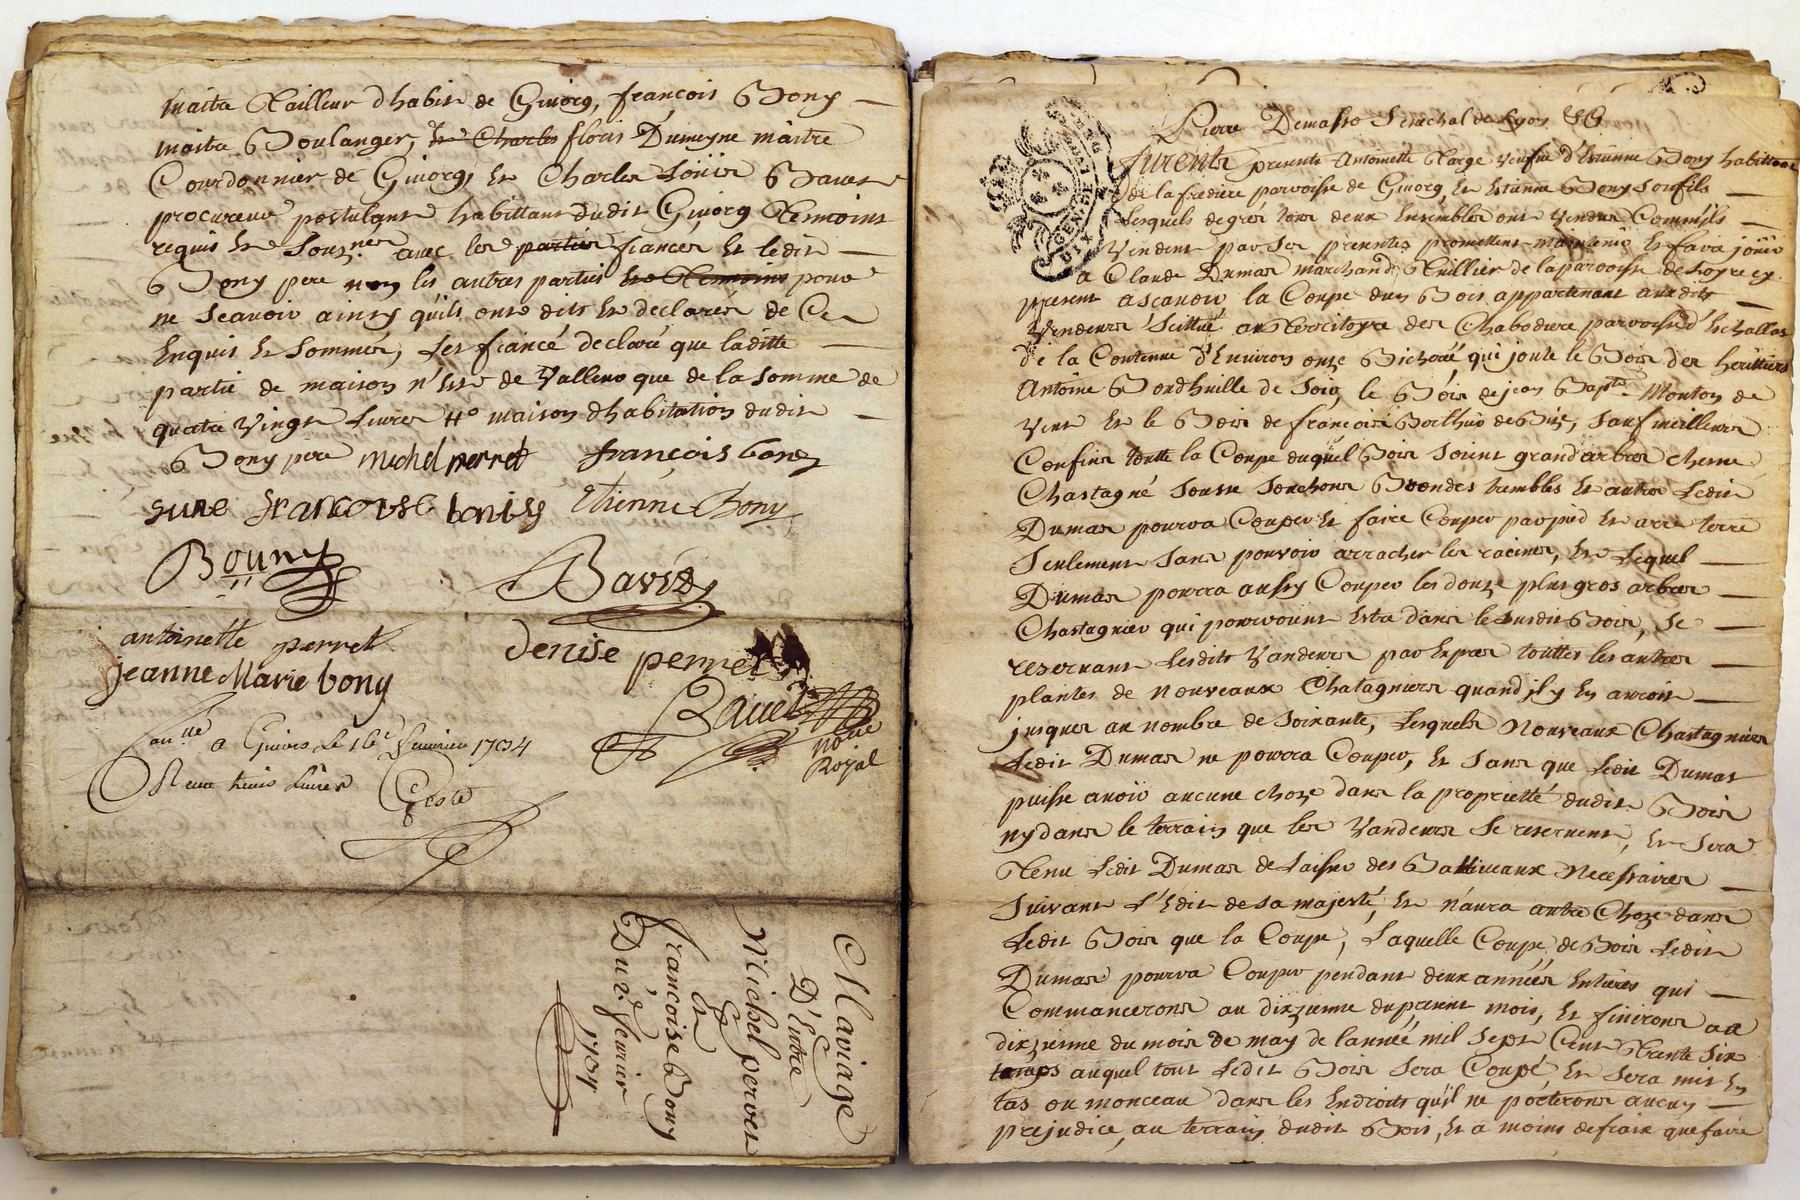 maitre Tailleur d'habits de Givorg, françois Bony
maitre Boulanger, et Charles floris Dumeyne maitre
Courdonnier de Givorg, et Charles Loüis Bavet
procureur postulant habittant dudit Givorg Temoins
requis et Souz.nez avec les parties fiancés et ledit
Bony pere non les autres parties et Temoins pour
ne Scavoir ainsy qu'ils ont dits et declarez de Ce
Enquis et Sommés, Les fiancé declaré que laditte
partie de maison n'est de Valleur que de la Somme de
quatre Vingt Livres # maison d'habitation dudit
Bony pere michel perret françois bony
françoise bonis Etienne Bony
Bouny Bavet
antoinette perret denise perret
jeanne Marie bony
Bavet
No.re
Royal
a Givors Le 16e fevrier 1734
Receu trois Livres
Mariage
D'Entre
Michel perret
Et
francoise Bony
Du 2e fevrier
1734
DIX DEN.
GENER. DE LYON
Pierre Demasso Senechal de Lyon &
furent presents Antoinette Targe Veufve d'Estienne Bony habittante
de la fredière parroisse de Givorg, et Estienne Bony Son fils
Lesquels de grés tous deux Ensembles ont Vendus Comm'ils
Vendent par Ses presentes promettent maintenir et faire joüir
a Claude Dumas marchand Tuillier de la parroisse de
present a Scavoir la Coupe du Bois appartenant auxdits
Vendeurs Scittué au Territoyre des Chabodure parroisse d'Echallas
de la Contenue d'Environ onze Bicherée, qui joute le Bois des heritiers
Antoine Bordhuille de le Bois de jean Bap.te Monton de
Vent et le Bois de francois Bolthui de Bie, Sauf meilleurs
Confins toutte la Coupe duquel Bois Soient grand arbres chesne
Chastagné Brondes trembles et autres Ledit
Dumas pourra Couper et faire Couper par pied et arre terre
Seulement Sans pouvoir arracher les racines, et Lequel
Dumas pourra aussy Couper les douze plus gros arbres
Chastagnier qui pourroient Estre dans le Susdit Bois, Se
reservant Lesdits Vandeurs par Expres touttes les autres
plantes de nouveaux Chatagniers quand il y En auroit
jusques au nombre de Soixante, Lesquels Nouveaux Chastagniers
Ledit Dumas ne pourra Couper, et Sans que Ledit Dumas
puisse avoir aucune choze dans la proprietté dudit Bois
ny dans le terrain que les Vandeurs Se reservent, et Sera
Tenu Ledit Dumas de Laisser des Balliveaux Necessaires
Suivant L'Edit de Sa majesté, et n'aura autre Choze dans
Ledit Bois que la Coupe, Laquelle Coupe de Bois Ledit
Dumas pourra Couper pendant deux années Entieres qui
Commancerons au dixzieme du present mois, et finirons au
dixzieme du mois de may de l'année mil Sept Cent Trente Six
temps auquel tout Ledit Bois Sera Coupé et Sera mis En
tas ou monceau dans les Endroits qu'il ne porterons aucun
prejudice, au terrain dudit Bois, et a moins de fraix que faire